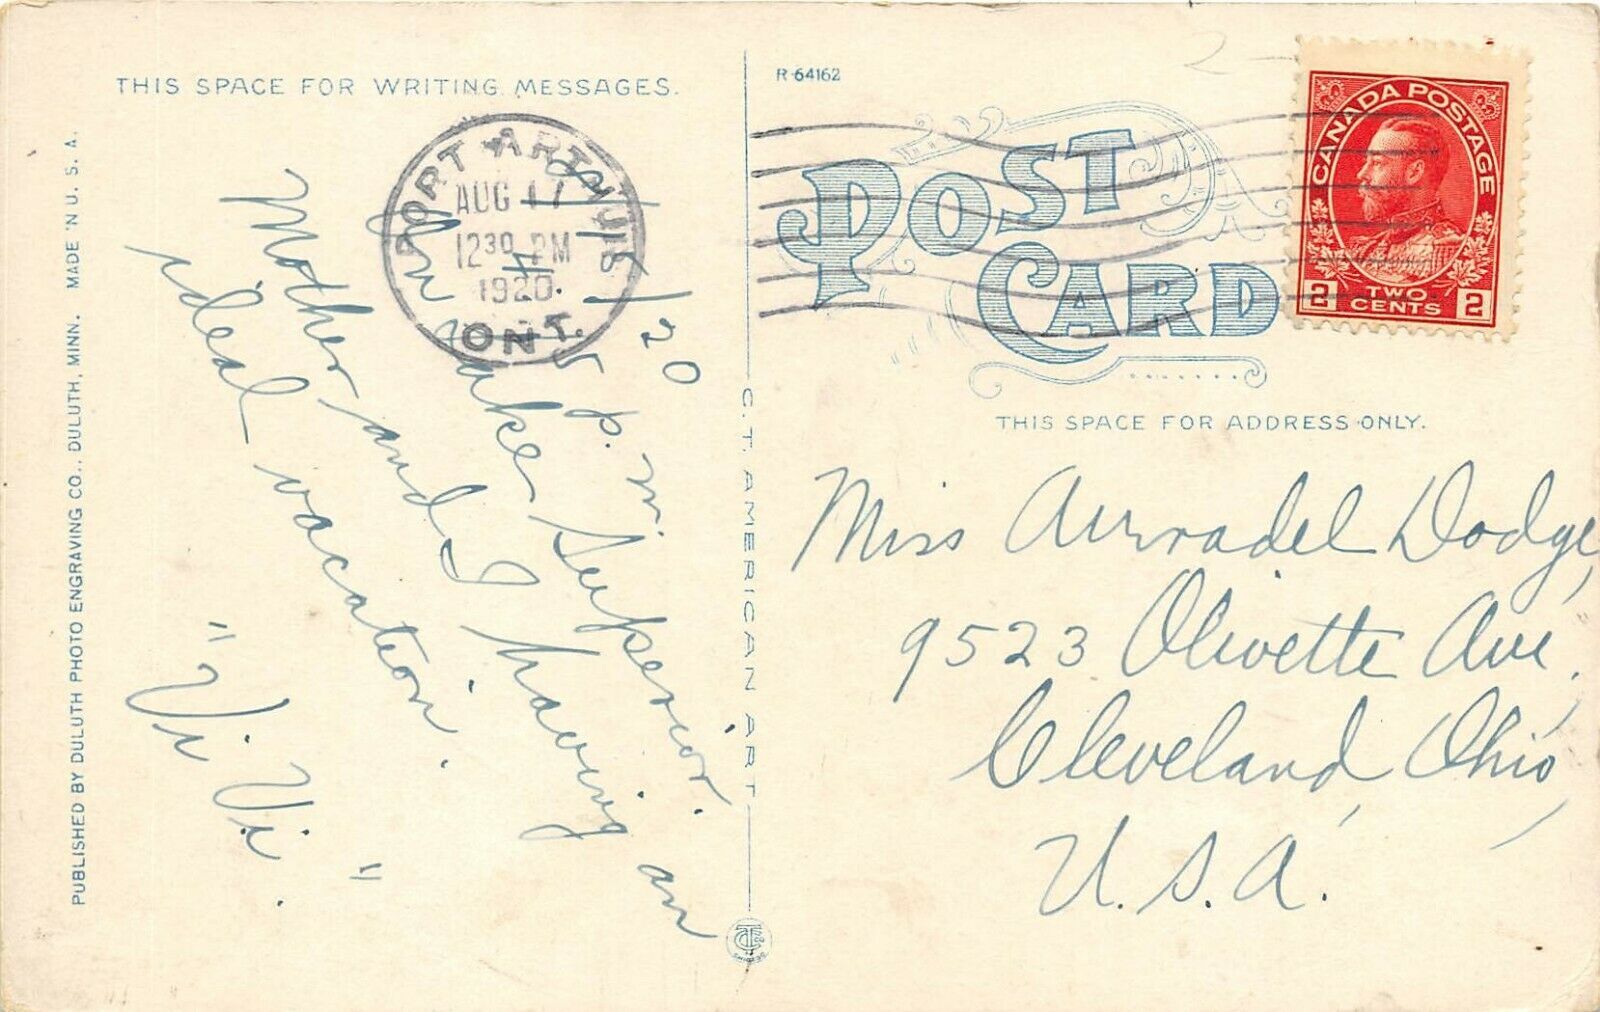 THIS SPACE FOR WRITING MESSAGES.
PORT ARTHUR
AUG 17
12 30 PM
1920.
ONT.
/20
5 p. m.
On Lake Superior.
Mother and I having an
ideal vacation.
"Vi Vi."
PUBLISHED BY DULUTH PHOTO ENGRAVING CO., DULUTH, MINN. MADE 'N U. S. A.
C. T. AMERICAN ART
R-64162
POST CARD
CANADA POSTAGE
2 TWO CENTS 2
THIS SPACE FOR ADDRESS ONLY.
Miss Auvradel Dodge,
9523 Olivette Ave.
Cleveland, Ohio,
U. S. A.